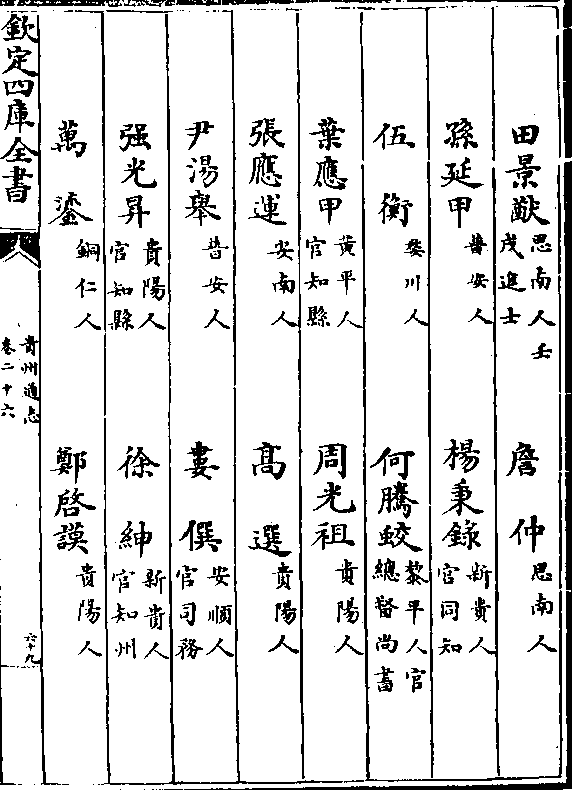 田景猷 思南人壬戌進士 詹仲 思南人
孫延甲 普安人 楊秉錄 新貴人官同知
伍衡 婺川人 何騰蛟 黎平人官總督尚書
葉應甲 黄平人官知縣 周光祖 貴陽人
張應運 安南人 高選 貴陽人
尹湯舉 普安人 婁僎 安順人官司務
强光昇 貴陽人官知縣 徐紳 新貴人官知州
萬鎏 銅仁人 鄭啓謨 貴陽人
欽定四庫全書 貴州通志卷二十六 六十九